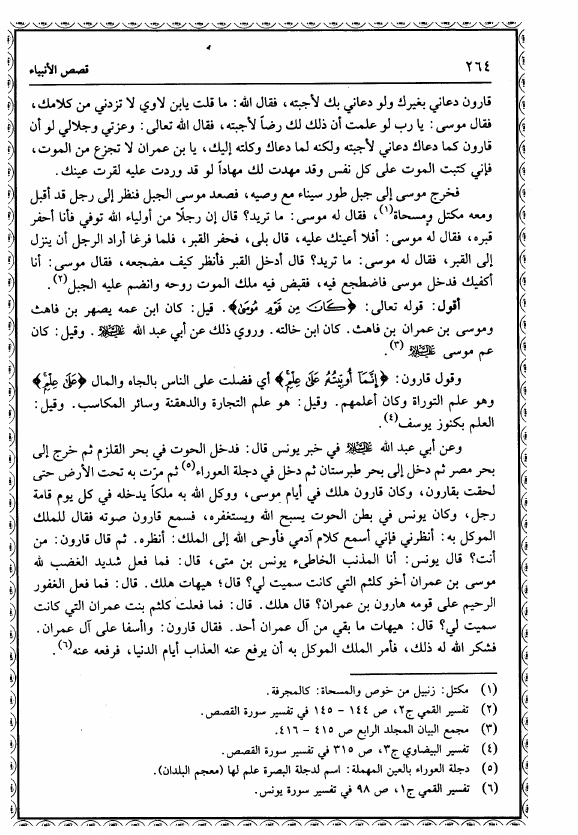 ٢٦٤
قصص الأنبياء
قارون دعاني بغيرك ولو دعاني بك لأجبته، فقال الله: ما قلت يابن لاوي لا تزدني من كلامك،
فقال موسى: يا رب لو علمت أن ذلك لك رضاً لأجبته، فقال الله تعالى: وعزتي وجلالي لو أن
قارون كما دعاك دعاني لأجبته ولكنه لما دعاك وكلته إليك، يا بن عمران لا تجزع من الموت،
فإني كتبت الموت على كل نفس وقد مهدت لك مهاداً لو قد وردت عليه لقرت عينك.
فخرج موسى إلى جبل طور سيناء مع وصيه، فصعد موسى الجبل فنظر إلى رجل قد أقبل
ومعه مكتل ومسحاة(١)، فقال له موسى: ما تريد؟ قال إن رجلًا من أولياء الله توفي فأنا أحفر
قبره، فقال له موسى: أفلا أعينك عليه، قال بلى، فحفر القبر، فلما فرغا أراد الرجل أن ينزل
إلى القبر، فقال له موسى: ما تريد؟ قال أدخل القبر فأنظر كيف مضجعه، فقال موسى: أنا
أكفيك فدخل موسى فاضطجع فيه، فقبض فيه ملك الموت روحه وانضم عليه الجبل(٢).
أقول: قوله تعالى: ﴿كَانَ مِن قَوْمِ مُوسَىٰ﴾. قيل: كان ابن عمه يصهر بن فاهث
وموسى بن عمران بن فاهث. كان ابن خالته. وروي ذلك عن أبي عبد الله عليه السلام. وقيل: كان
عم موسى عليه السلام(٣).
وقول قارون: ﴿إِنَّمَا أُوتِيتُهُ عَلَىٰ عِلْمٍ﴾ أي فضلت على الناس بالجاه والمال ﴿عَلَىٰ عِلْمٍ﴾
وهو علم التوراة وكان أعلمهم. وقيل: هو علم التجارة والدهقنة وسائر المكاسب. وقيل:
العلم بكنوز يوسف(٤).
وعن أبي عبد الله عليه السلام في خبر يونس قال: فدخل الحوت في بحر القلزم ثم خرج إلى
بحر مصر ثم دخل إلى بحر طبرستان ثم دخل في دجلة العوراء(٥) ثم مرّت به تحت الأرض حتى
لحقت بقارون، وكان قارون هلك في أيام موسى، ووكل الله به ملكاً يدخله في كل يوم قامة
رجل، وكان يونس في بطن الحوت يسبح الله ويستغفره، فسمع قارون صوته فقال للملك
الموكل به: أنظرني فإني أسمع كلام آدمي فأوحى الله إلى الملك: أنظره. ثم قال قارون: من
أنت؟ قال يونس: أنا المذنب الخاطىء يونس بن متى، قال: فما فعل شديد الغضب لله
موسى بن عمران أخو كلثم التي كانت سميت لي؟ قال؛ هيهات هلك. قال: فما فعل الغفور
الرحيم على قومه هارون بن عمران؟ قال هلك. قال: فما فعلت كلثم بنت عمران التي كانت
سميت لي؟ قال: هيهات ما بقي من آل عمران أحد. فقال قارون: واأسفا على آل عمران.
فشكر الله له ذلك، فأمر الملك الموكل به أن يرفع عنه العذاب أيام الدنيا، فرفعه عنه(٦).
(١) مكتل: زنبيل من خوص والمسحاة: كالمجرفة.
(٢) تفسير القمي ج٢، ص ١٤٤ - ١٤٥ في تفسير سورة القصص.
(٣) مجمع البيان المجلد الرابع ص ٤١٥ - ٤١٦.
(٤) تفسير البيضاوي ج٣، ص ٣١٥ في تفسير سورة القصص.
(٥) دجلة العوراء بالعين المهملة: اسم لدجلة البصرة علم لها (معجم البلدان).
(٦) تفسير القمي ج١، ص ٩٨ في تفسير سورة يونس.